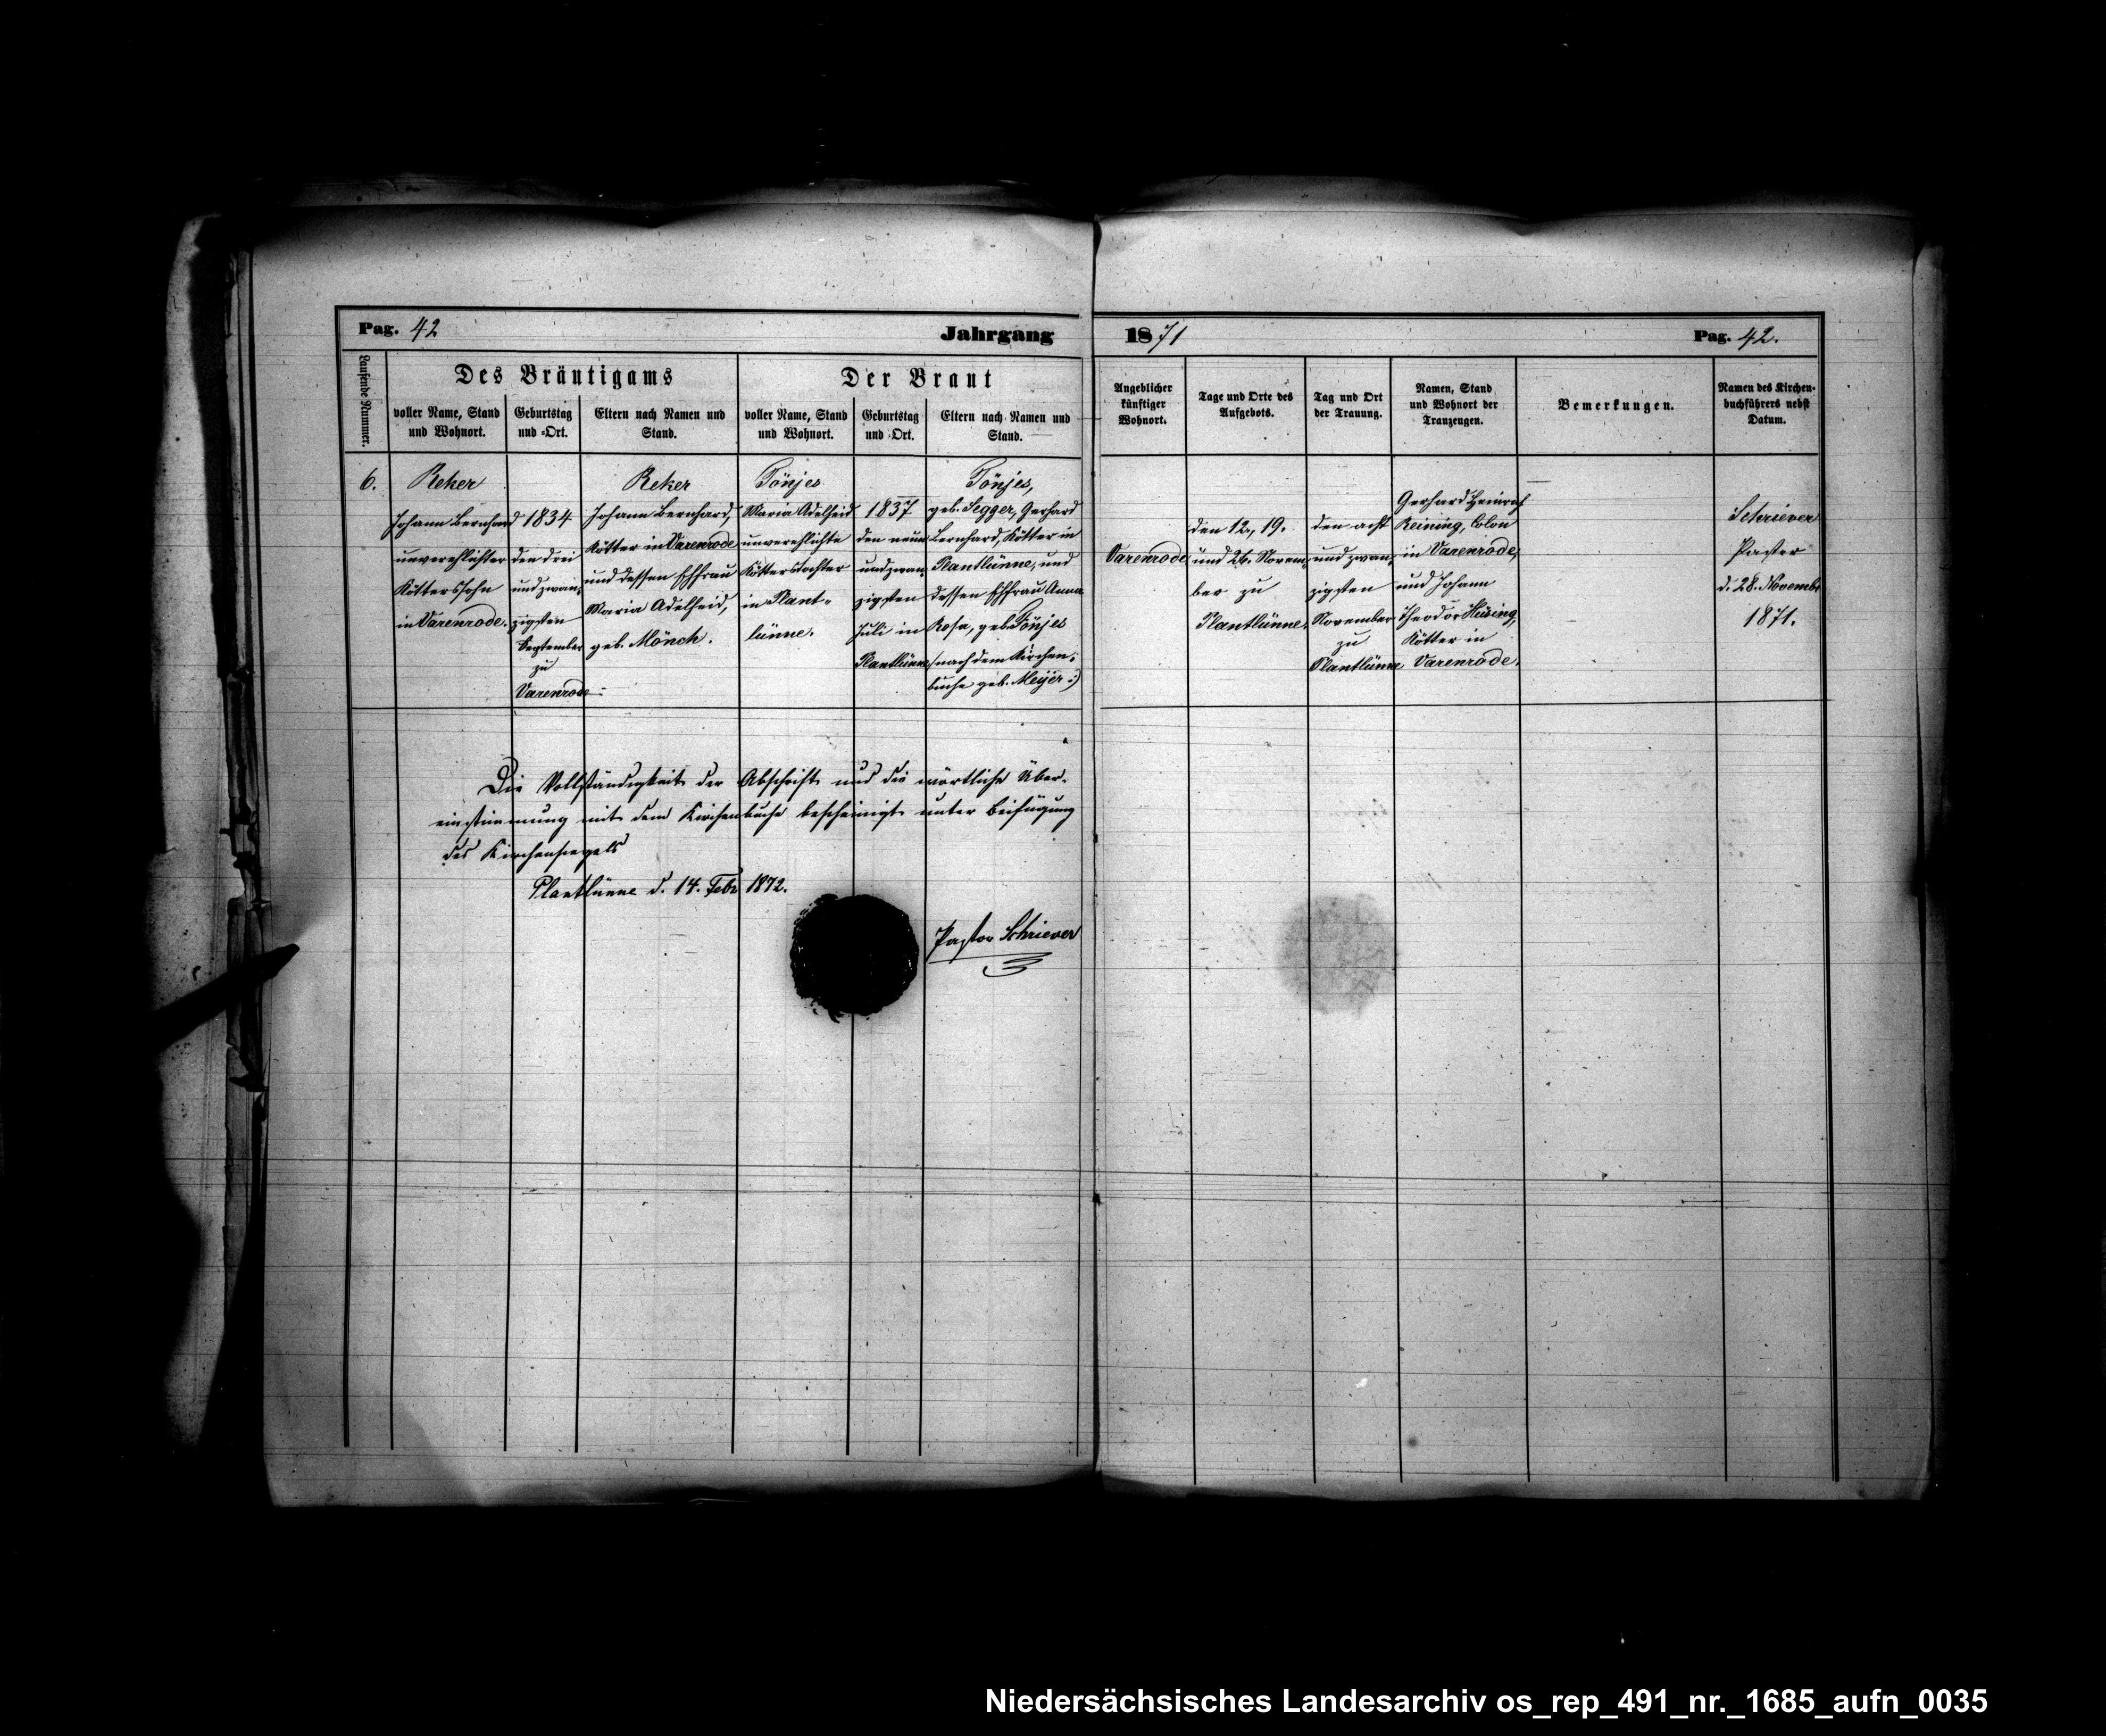 Pag. 42
Jahrgang
1871
Pag. 42.
Laufende Nummer.
Des Bräutigams
voller Name, Stand
und Wohnort.
Geburtstag
und -Ort.
Eltern nach Namen und
Stand.
Der Braut
voller Name, Stand
und Wohnort.
Geburtstag
und -Ort.
Eltern nach Namen und
Stand.
Angeblicher
künftiger
Wohnort.
Tage und Orte des
Aufgebots.
Tag und Ort
der Trauung.
Namen, Stand
und Wohnort der
Trauzeugen.
Bemerkungen.
Namen des Kirchen-
buchführers nebst
Datum.
6.
Reker
Johann Bernhard
unverehlichter
Kötterssohn
in Varenrode.
1834
den drei
undzwan-
zigsten
September
zu
Varenrode.
Reker
Johann Bernhard,
Kötter in Varenrode
und dessen Ehfrau
Maria Adelheid,
geb. Mönch.
Tönjes
Maria Adelheid
unverehlichte
Kötterstochter
in Plant-
lünne.
1837
den neun
undzwan-
zigsten
Juli in
Plantlünne
Tönjes,
geb. Segger, Gerhard
Bernhard, Kötter in
Plantlünne, und
dessen Ehfrau Anna
Rosa, geb. Tönjes
(nach dem Kirchen-
buche geb. Meijer :)
Varenrode
den 12., 19.
und 26. Novem-
ber zu
Plantlünne.
den acht
und zwan-
zigsten
November
zu
Plantlünne
Gerhard Heinrich
Reining, Colon
in Varenrode,
und Johann
Theodor Hüsing,
Kötter in
Varenrode.
Schriever
Pastor
d. 28. Novembr
1871.
Die Vollständigkeit der Abschrift und die wörtliche Über-
einstimmung mit dem Kirchenbuche bescheinigt unter Beifügung
des Kirchensiegels
Plantlünne d. 14. Febr 1872.
Pastor Schriever
Niedersächsisches Landesarchiv os_rep_491_nr._1685_aufn_0035